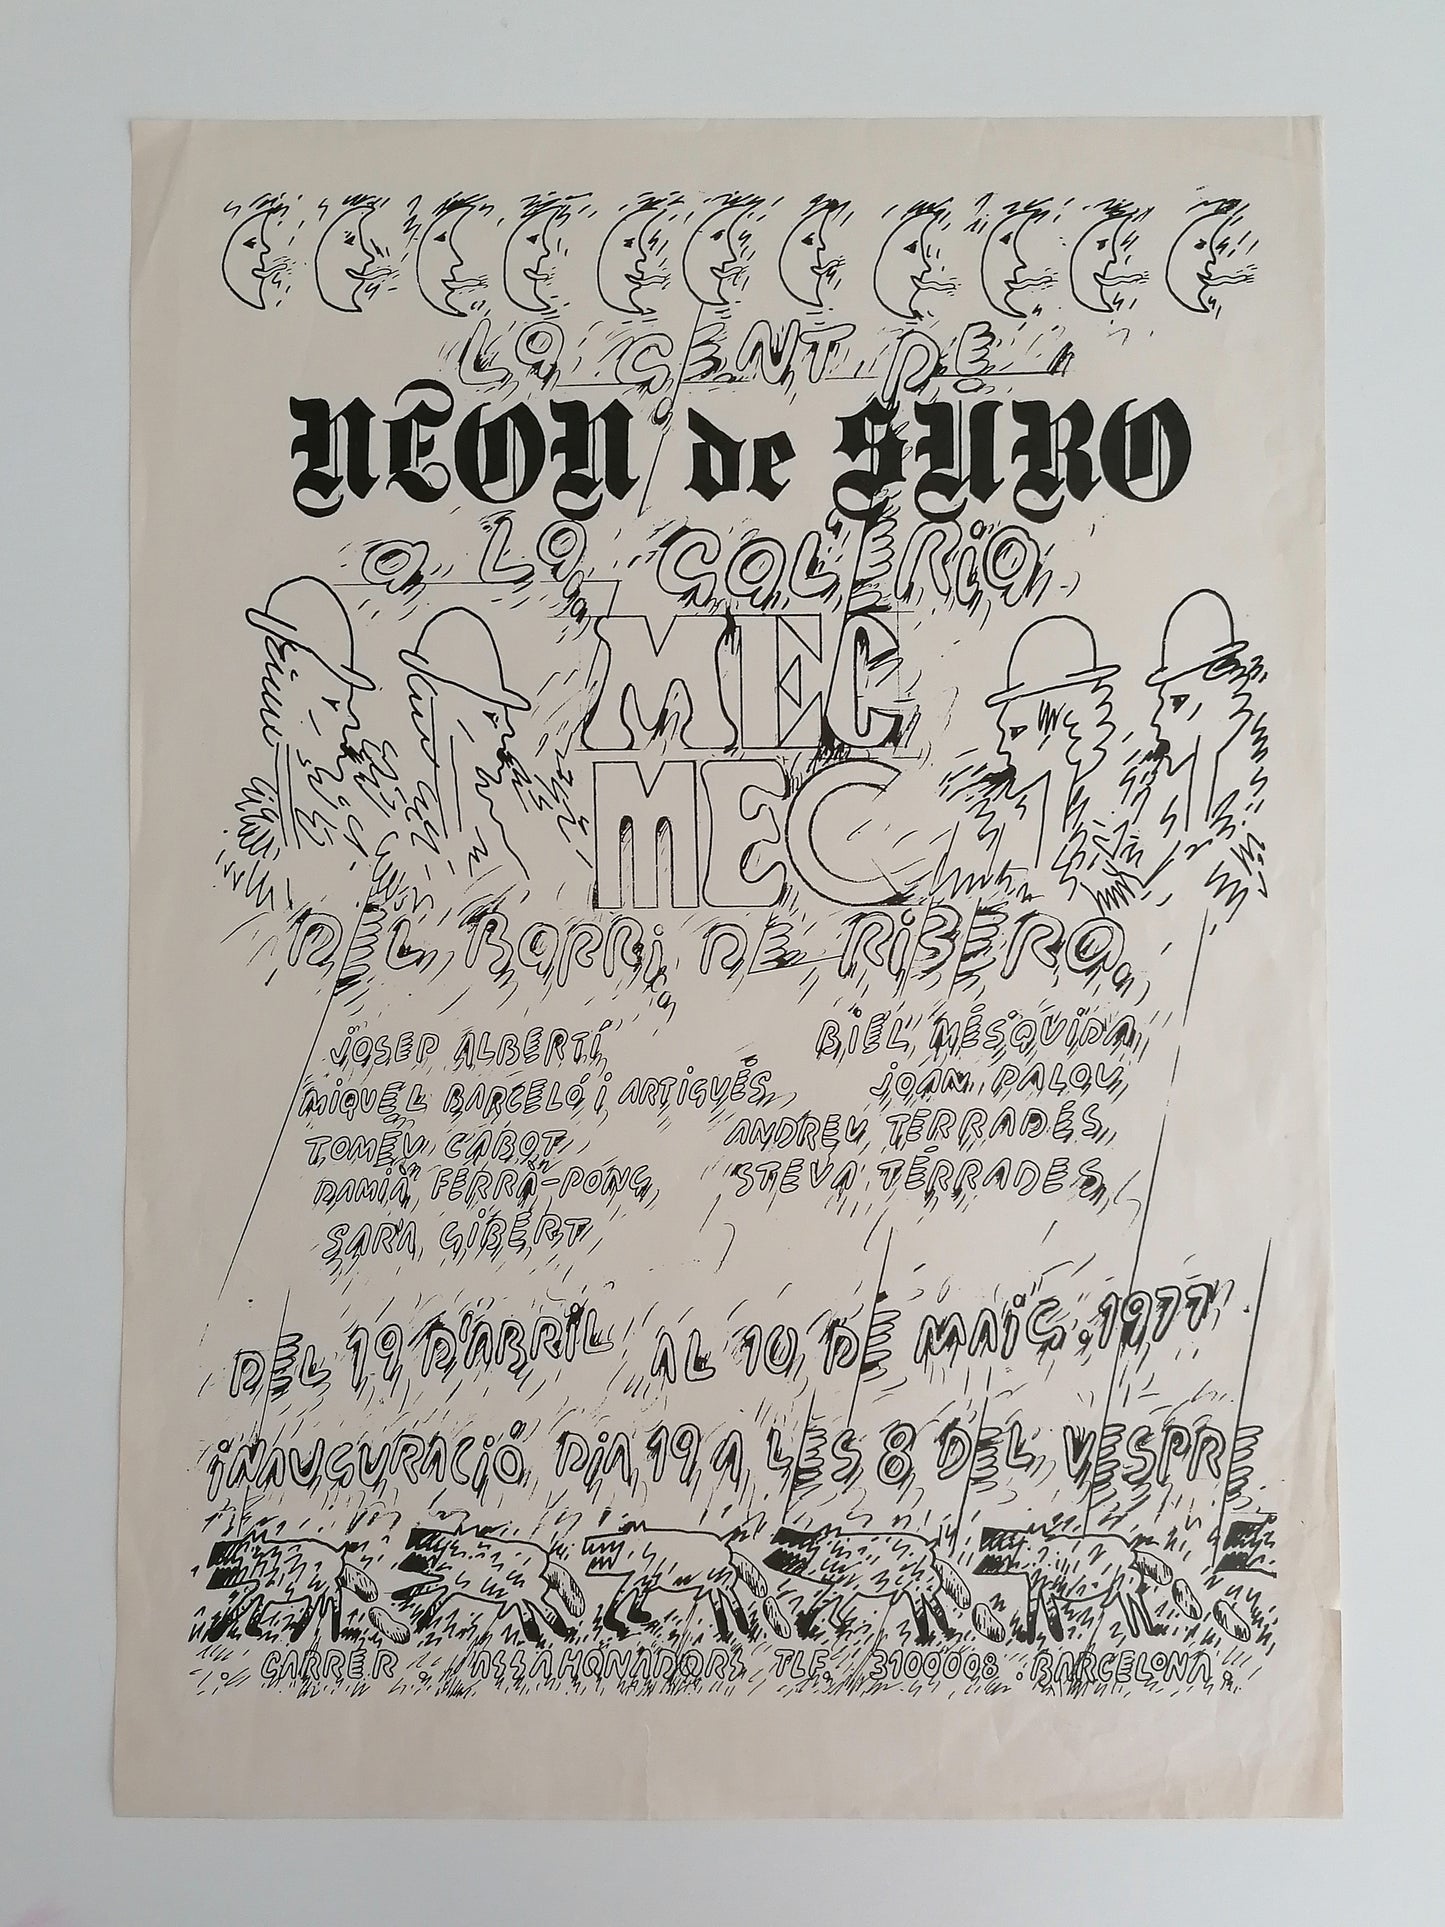 La GENT DE
NEON de SURO
a La GaLERia
MEC
MEC
DEL BaRRi DE RiBERa
JOSEP ALBERTÍ
MiQUEL BARCELÓ i ARTIGUES
TOMEU CABOT
DAMIÀ FERRÀ-PONÇ
SARA GIBERT
BIEL MESQUIDA
JOAN PALOU
ANDREU TERRADES
STEVA TERRADES
DEL 19 D'ABRIL AL 10 DE MAiG.1977.
iNAUGURACiÓ DiA 19 A LES 8 DEL VESPRE
CARRER ASSAHONADORS TLF. 3100008. BARCELONA.